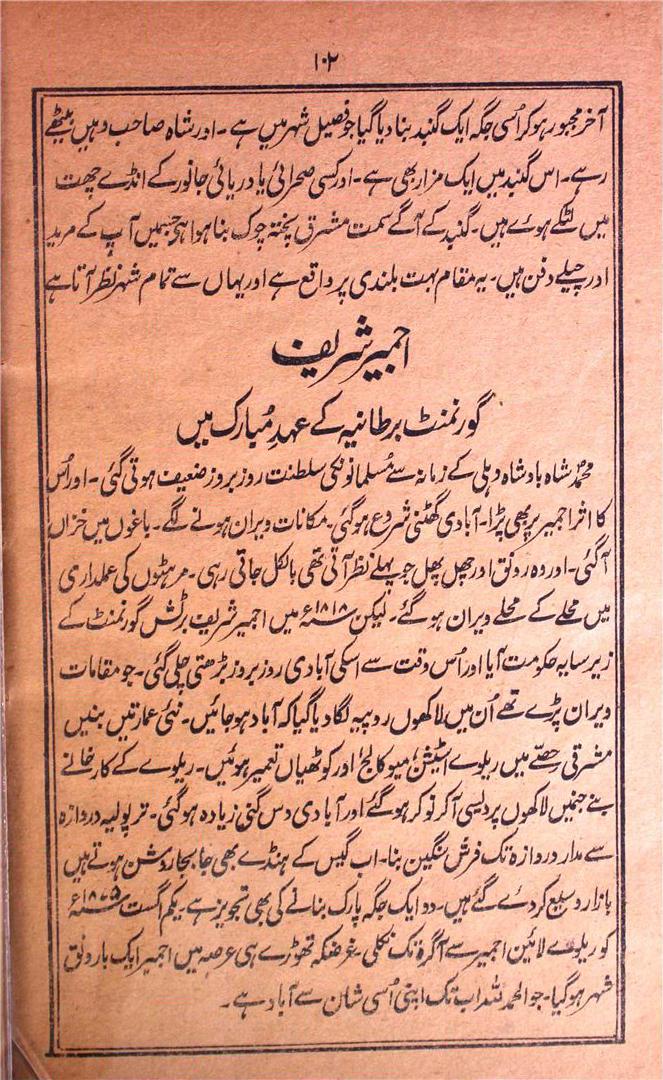 ۱۰۲
آخر مجبور ہو کر اُسی جگہ ایک گنبد بنا دیا گیا جو فصیل شہر میں ہے ۔ اور شاہ صاحب وہیں بیٹھے
رہے ۔ اس گنبد میں ایک مزار بھی ہے ۔ اور کسی صحرائی یا دریائی جانور کے انڈے چھت
میں لٹکے ہوئے ہیں ۔ گنبد کے آگے سمت مشرق پختہ چوک بنا ہوا ہے جسمیں آپ کے مرید
اور چیلے دفن ہیں ۔ یہ مقام بہت بلندی پر واقع ہے اور یہاں سے تمام شہر نظر آتا ہے
اجمیر شریف
گورنمنٹ برطانیہ کے عہدِ مُبارک میں
محمد شاہ بادشاہ دہلی کے زمانہ سے مُسلمانونکی سلطنت روز بروز ضعیف ہوتی گئی ۔ اور اُس
کا اثر اجمیر پر بھی پڑا ۔ آبادی گھٹنی شروع ہو گئی ۔ مکانات ویران ہونے لگے ۔ باغوں میں خزاں
آ گئی ۔ اور وہ رونق اور چہل پہل جو پہلے نظر آتی تھی بالکل جاتی رہی ۔ مرہٹوں کی عملداری
میں محلے کے محلے ویران ہو گئے ۔ لیکن ۱۸۱۸ء میں اجمیر شریف برٹش گورنمنٹ کے
زیر سایہ حکومت آیا اور اُس وقت سے اسکی آبادی روز بروز بڑھتی چلی گئی ۔ جو مقامات
ویران پڑے تھے اُن میں لاکھوں روپیہ لگا دیا گیا کہ آباد ہو جائیں ۔ نئی عمارتیں بنیں
مشرقی حِصّے میں ریلوے اسٹیشن، میو کالج اور کوٹھیاں تعمیر ہوئیں ۔ ریلوے کے کارخانے
بنے جنمیں لاکھوں پردیسی آ کر نوکر ہو گئے اور آبادی دس گنی زیادہ ہو گئی ۔ ترپولیہ دروازہ
سے مدار دروازہ تک فرش سنگین بنا ۔ اب گیس کے ہنڈے بھی جا بجا روشن ہوتے ہیں
بازار وسیع کر دئے گئے ہیں ۔ دو ایک جگہ پارک بنانے کی بھی تجویز ہے ۔ یکم اگست ۱۸۷۵ء
کو ریلوے لائین اجمیر سے آگرہ تک نکلی ۔ غرضکہ تھوڑے ہی عرصہ میں اجمیر ایک بارونق
شہر ہو گیا ۔ جو الحمد للہ اب تک اپنی اُسی شان سے آباد ہے ۔